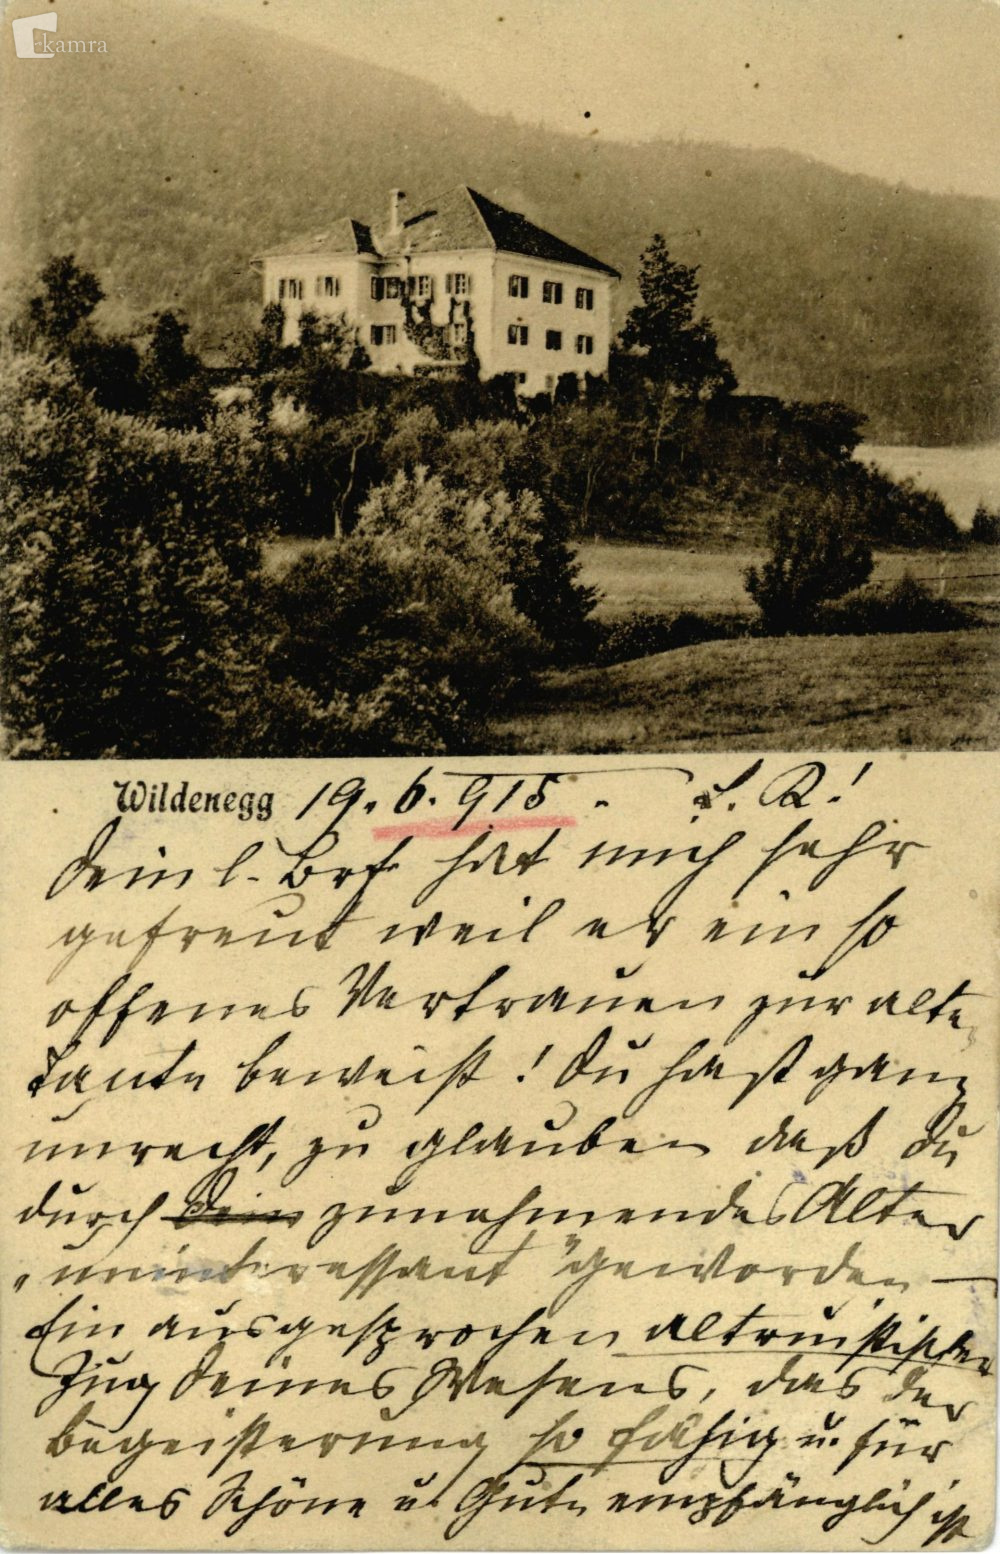 kamra
Wildenegg 19. 6. 915. L. R!
Dein l. Brf hat mich sehr
gefreut weil er ein so
offenes Vertrauen zur alten
Tante beweist! Du hast ganz
unrecht, zu glauben daß Du
durch Dein zunehmendes Alter
"uninteressant" geworden —
Ein ausgesprochen altruistischer
Zug Deines Wesens, das der
Begeisterung so fähig u. für
alles Schöne u. Gute empfänglich ist